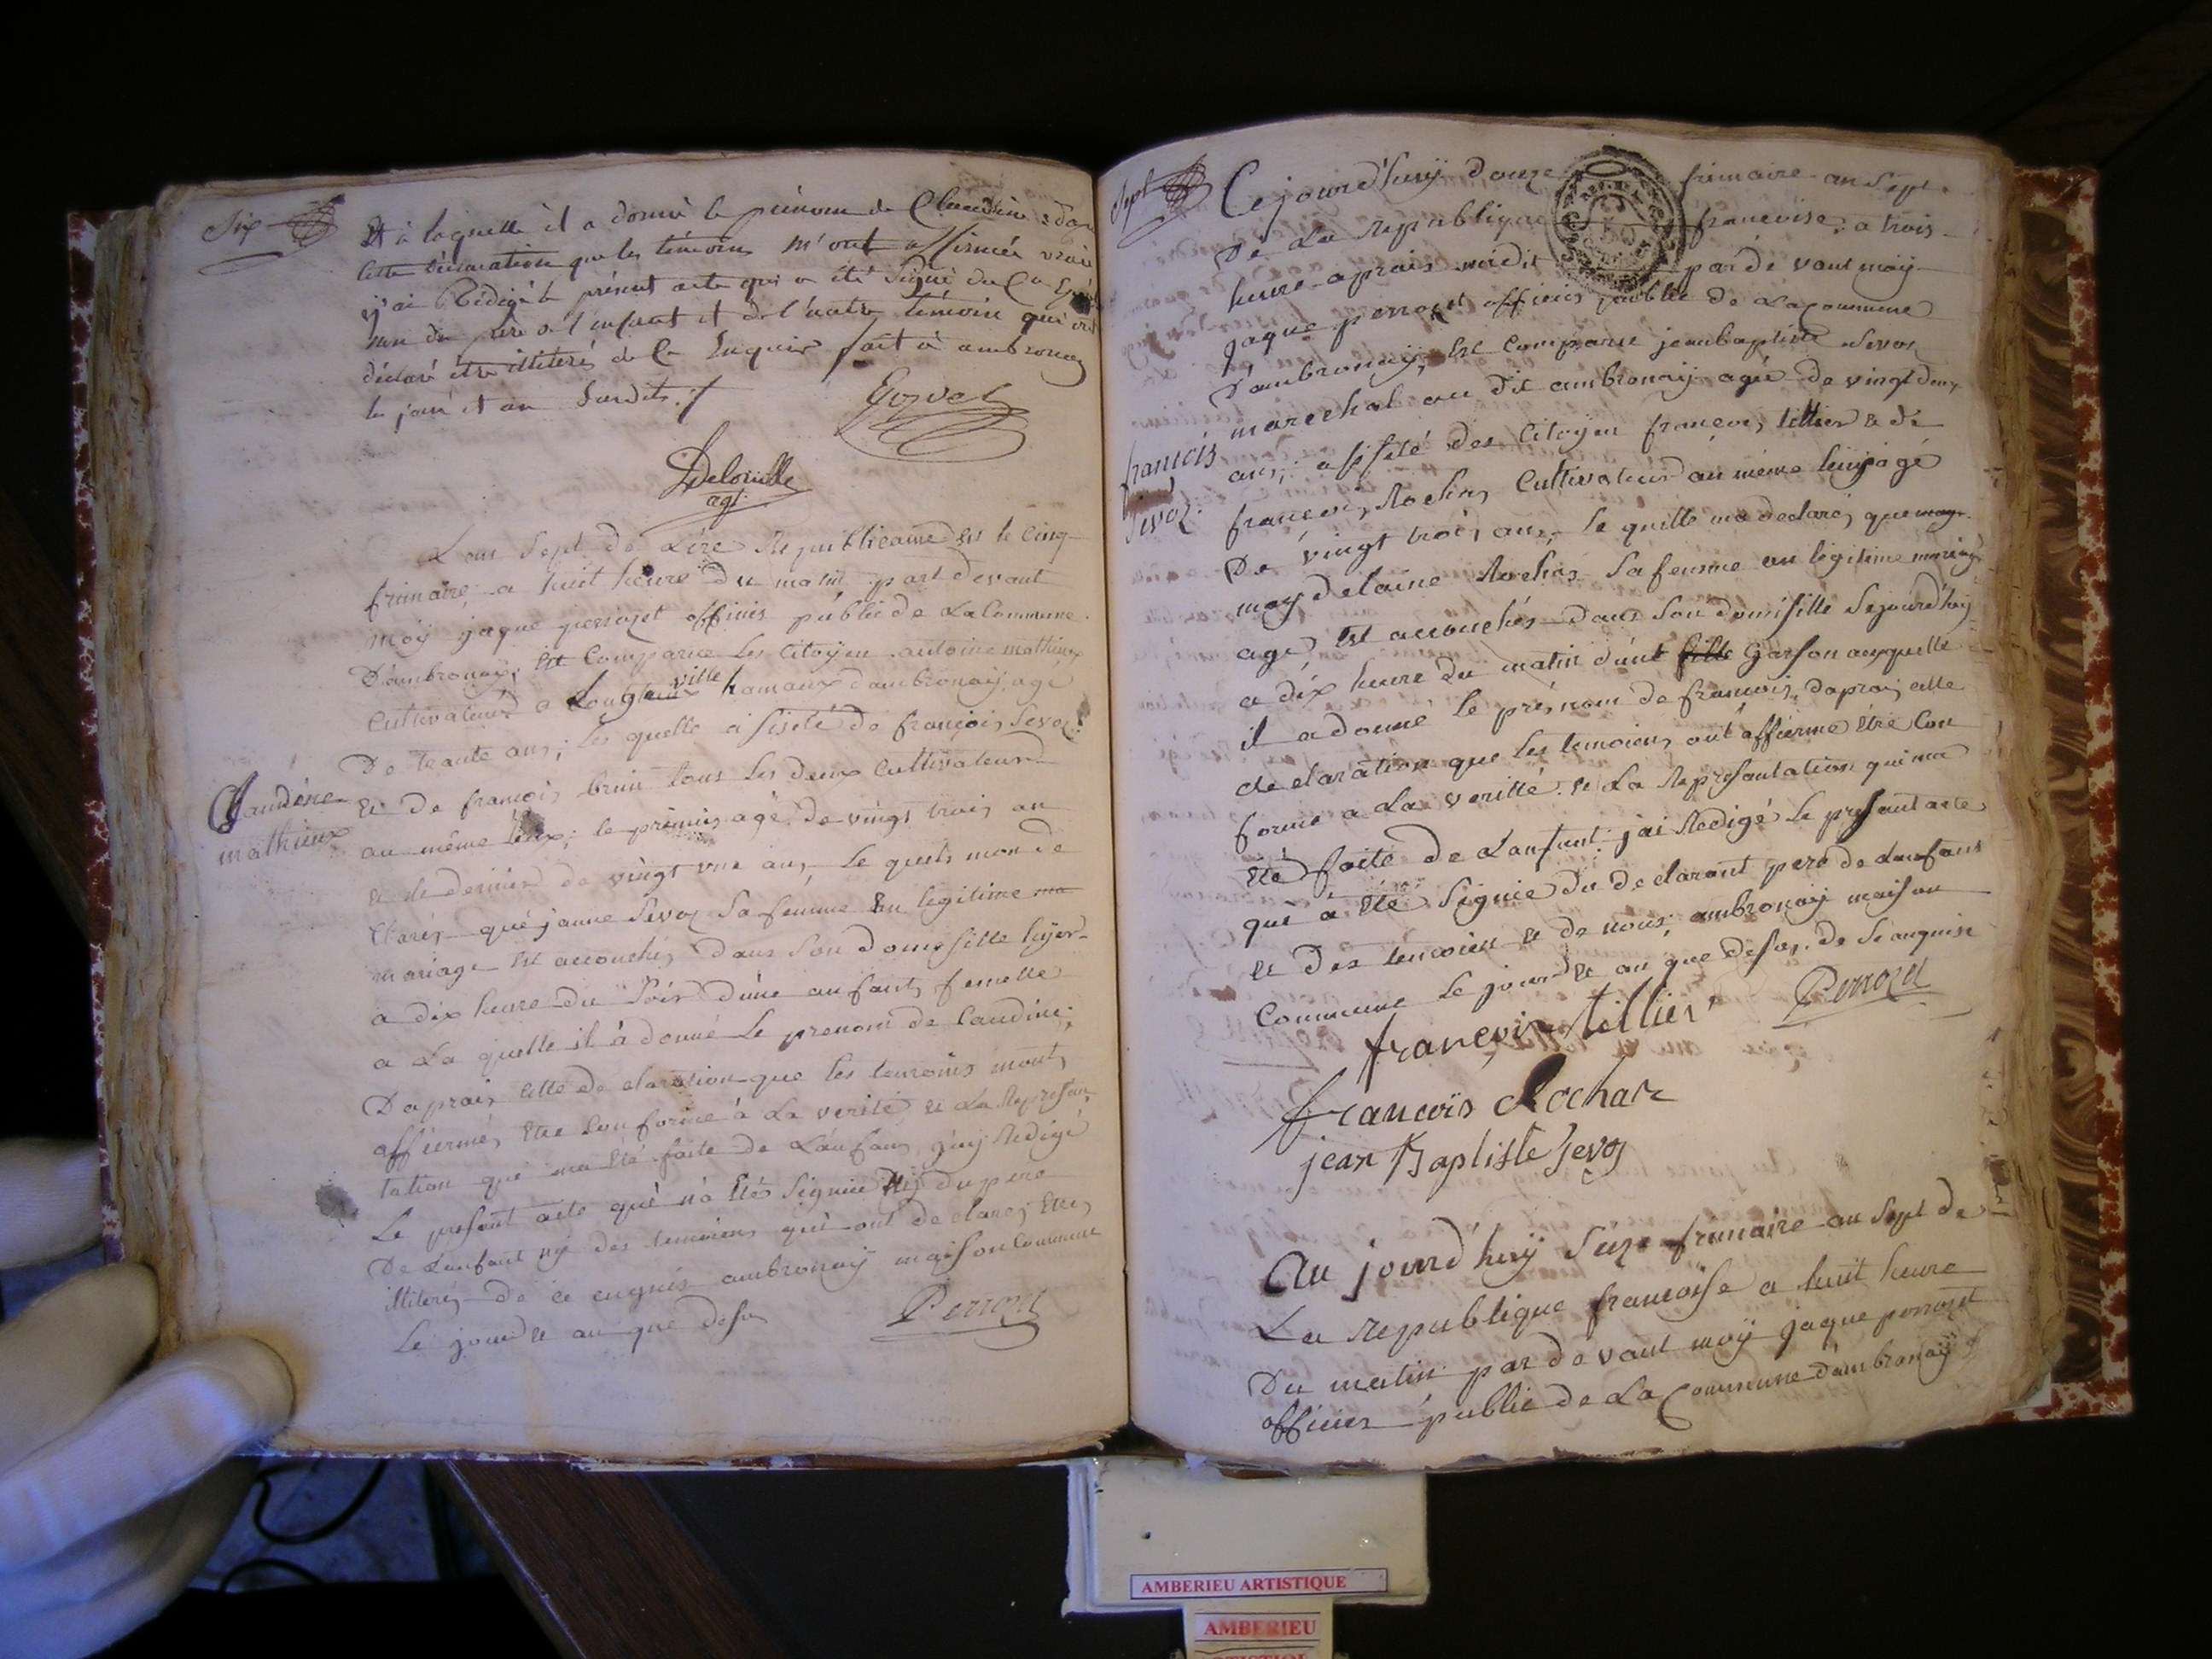 Six
Et à laquelle il a donné le prénom de Claudine & dapr
cette déclaration que les témoins m'ont affirmée vraie
j'ai Redigé le présent acte qui a été signé du Cn
non du père de l'enfant et de l'autre témoin qui ont
déclaré etre illiterés de Ce Enquis fait à ambronay
les jour et an Susdits ./.
Gozvet
Delorille
agt.
Lans Sept de Lère Republicaine Est le cinq
frimaire a huit heure du matin part devant
moÿ jaque perrozet offisier public de La Commune
D'ambronay; Est Comparue Les Citoyen antoine mathieux
Cultivateur a Longeville hamaux dambronaÿ agé
De trante ans; Les quelle asisté de françois Sevoz
Claudine
mathieux
Et de françois brun tous Les deux Cultivateur
au même lieux; le premier agé de vingt trois an
Et le dernier de vingt une ans, Le quels mon dé
Clarés que janne Sevoz Sa femme En legitime ma
mariage Est accouchés Dans Son domesille hÿer
a dix heure du Soir d'une anfants femelle
a La quelle il à donné Le prenom de Caudine;
Daprais cette declaration que les temoins mont
affiermés Etre Conforme à La verité Et La Represan
tation qui ma Eté faite de L'anfans j'aij Redigé
Le presant acte qui n'a Etés Signiée Nÿ du pere
De Lanfant nÿ des temoiens qui ont declarés Etres
illiterés de ce enquis ambronay maison Commune
Le jour Et an que desu
Perrozet
Sept
Cejourd'huÿ douze frimaire an Sept
De La Republique francoise, a trois
heure aprais midit par de vant moÿ
jaque perrozet offisier public de La Commune
D'ambronaÿ; Est Comparue jean baptiste Sevoz
marechal au dit ambronaÿ agée de vingt deux
francois
Sevoz.
ans; assisté des Citoyen françois tillier & de
françois Rochas Cultivateur au même lieux agé
De vingt trois ans, Le quelle ma declarés, que
may delaine Rochas Sa femme an legitime mariag
age, Est accouchés dans Son domisille Sejourdhuÿ
a dix heure du matin d'une fille Garson auquelle
il a donné Le prénom de francois, daprais cette
declaration que Les temoiens ont affierme Etre Con
forme a La verité Et La Represantation qui ma
Eté faite de Lanfant; jai Redigé Le presant acte
qui a Eté Signie du declarant pere de Lanfans
Et Des temoien & de nous; ambronaÿ maison
Commune Le jour & an que desus. de Se anquise
Perrozet
françois tillier
francoïs Rochas
jean Baptiste Sevoz
Au jourd'huÿ Seize frimaire an Sept de
La Republique francoise a huit heure
Du matin par devant moÿ jaque perrozet
offisier public de La Commune dambronaÿ
AMBERIEU ARTISTIQUE
AMBERIEU